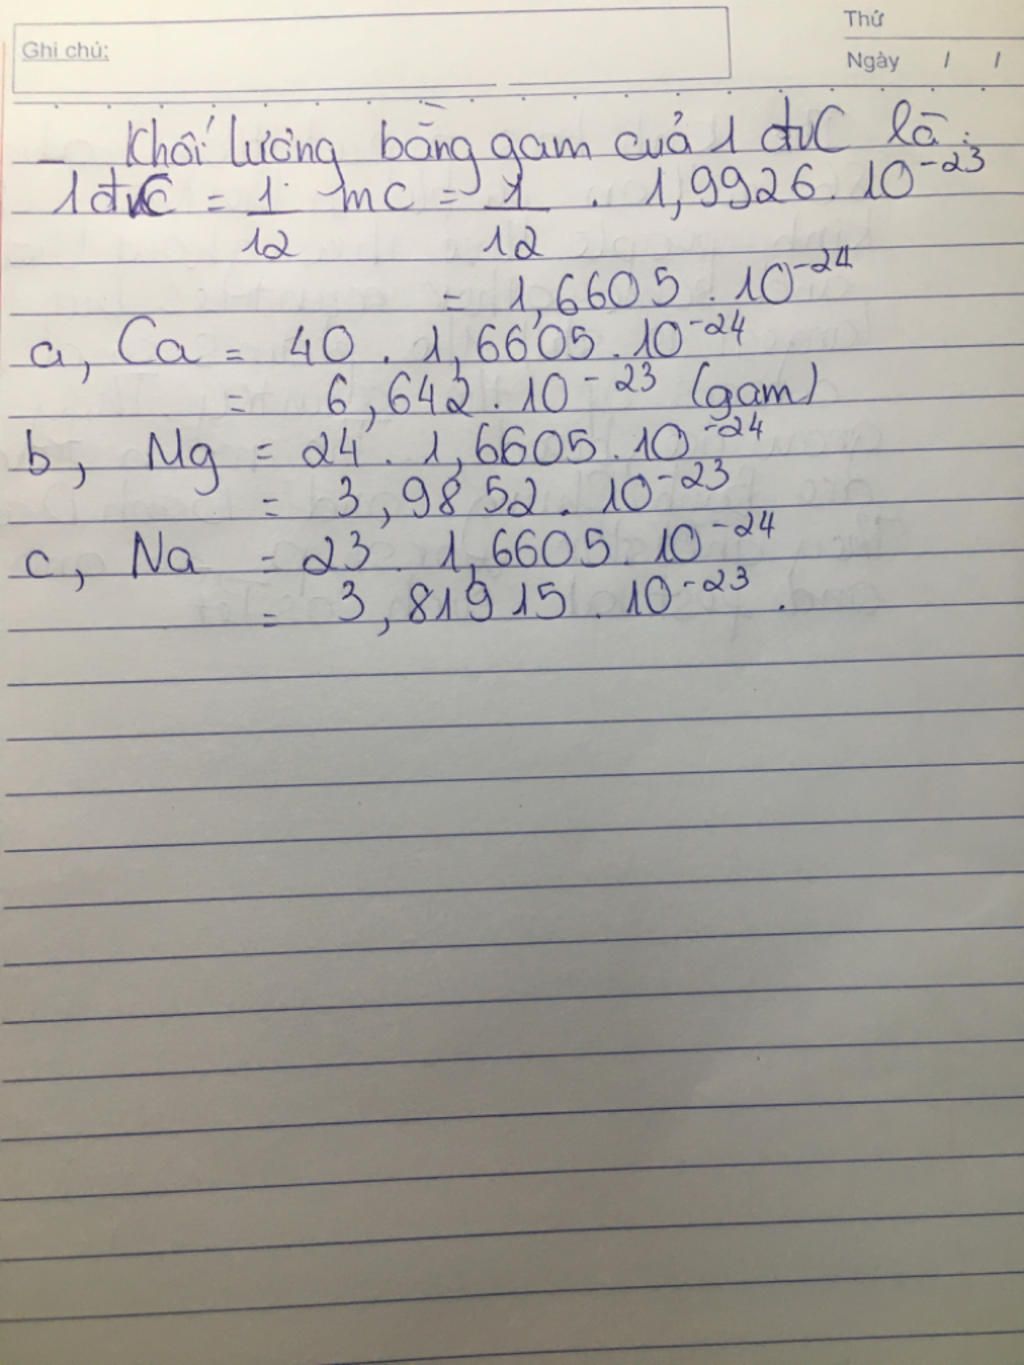 Thứ
Ghi chú:
Ngày / /
- Khối lượng bằng gam của 1 đvC là:
1đvC = 1/12 mC = 1/12 . 1,9926. 10⁻²³
= 1,6605 . 10⁻²⁴
a, Ca = 40 . 1,6605. 10⁻²⁴
= 6,642. 10⁻²³ (gam)
b, Mg = 24 . 1,6605. 10⁻²⁴
= 3,9852. 10⁻²³
c, Na = 23. 1,6605. 10⁻²⁴
= 3,81915. 10⁻²³.